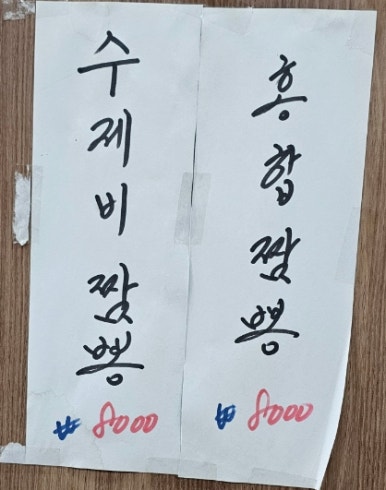 수제비짬뽕
₩ 8000
홍합짬뽕
₩ 8000